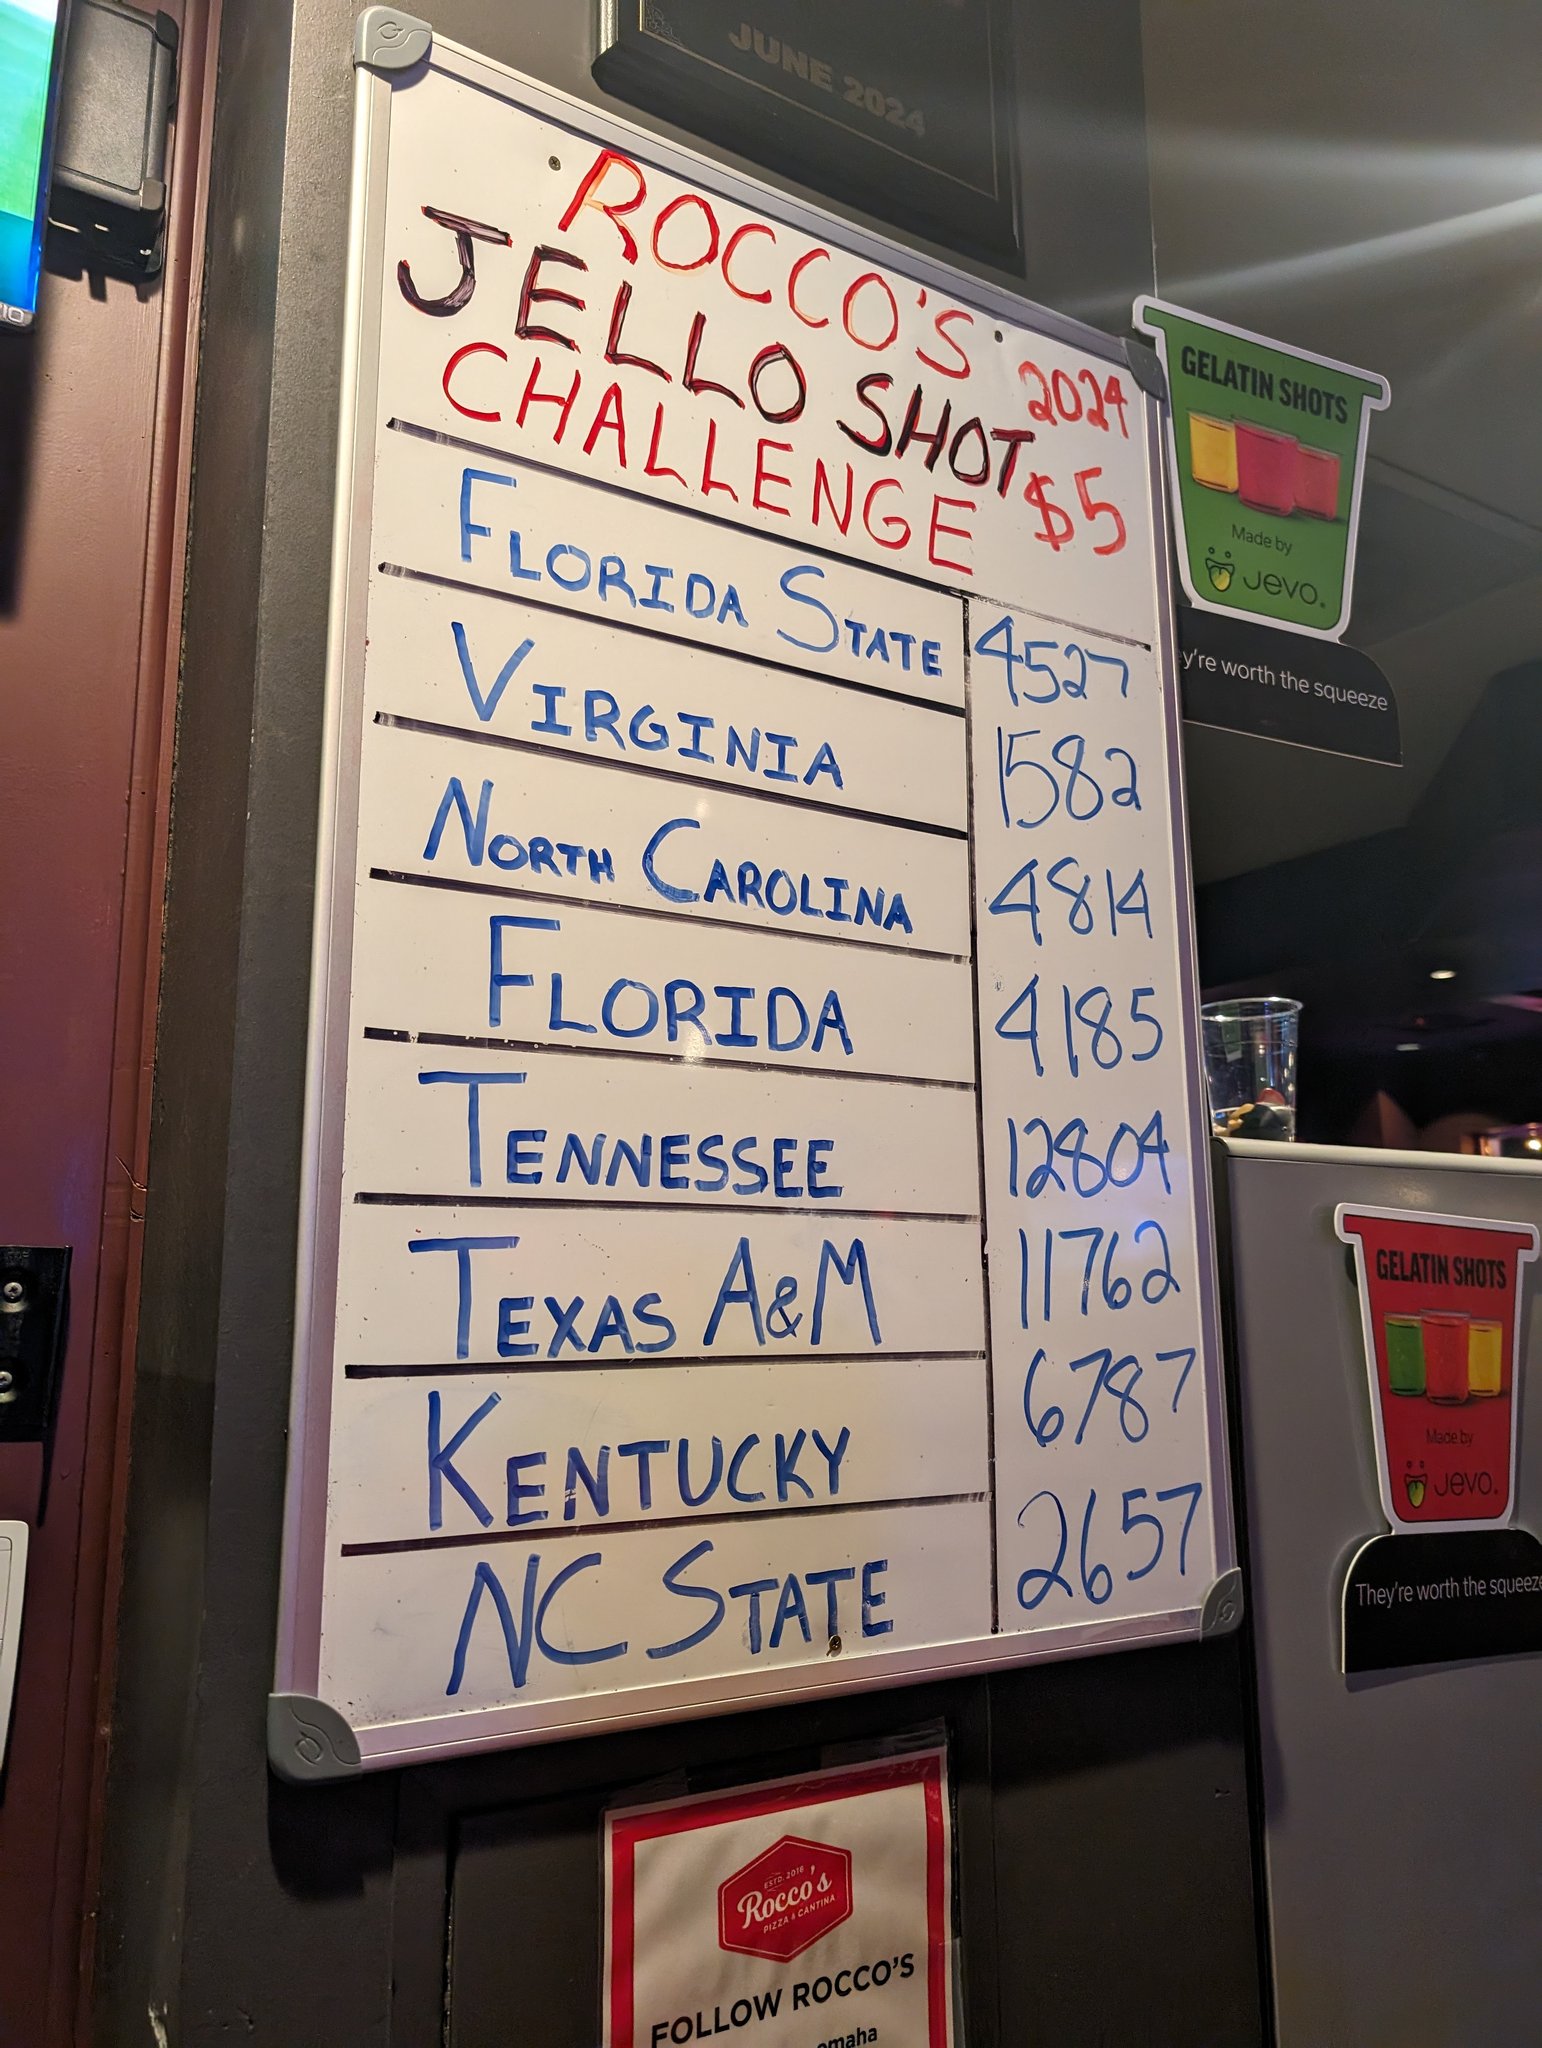 JUNE 2024
ROCCO'S
JELLO SHOT 2024
CHALLENGE $5
FLORIDA STATE 4527
VIRGINIA 1582
NORTH CAROLINA 4814
FLORIDA 4185
TENNESSEE 12804
TEXAS A&M 11762
KENTUCKY 6787
NC STATE 2657
GELATIN SHOTS
Made by
JEVO.
y're worth the squeeze
GELATIN SHOTS
Made by
JEVO.
They're worth the squeeze
ESTD. 2016
Rocco's
PIZZA & CANTINA
FOLLOW ROCCO'S
omaha